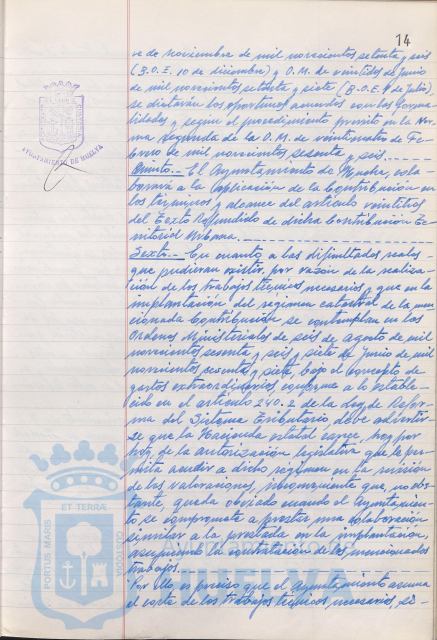 14
ve de noviembre de mil novecientos setenta y seis
(B.O.E. 10 de diciembre) y O.M. de veintidos de Junio
de mil novecientos setenta y siete (B.O.E. 4 de Julio),
se dictarán los oportunos acuerdos con las forma-
lidades y según el procedimiento previsto en la Nor-
ma segunda de la O.M. de veinticuatro de Fe-
brero de mil novecientos sesenta y seis.
Quinto.- El Ayuntamiento de Huelva, cola-
borará a la aplicación de la Contribución en
los términos y alcance del artículo veintitres
del Texto Refundido de dicha Contribución Te-
rritorial Urbana.
Sexto.- En cuanto a las dificultades reales
que pudieran existir, por razón de la realiza-
ción de los trabajos técnicos necesarios y que en la
implantación del régimen catastral de la men-
cionada Contribución se contemplan en las
Ordenes Ministeriales de seis de agosto de mil
novecientos sesenta y seis y siete de Junio de mil
novecientos sesenta y siete, bajo el concepto de
gastos extraordinarios conforme a lo estable-
cido en el artículo 240.2 de la Ley de Refor-
ma del Sistema Tributario, debe advertir-
se que la Hacienda estatal carece, hoy por
hoy, de la autorización legislativa que le per-
mita acudir a dicho régimen en la revisión
de las valoraciones, inconveniente que, no obs-
tante, queda obviado cuando el Ayuntamien-
to se compromete a prestar una colaboración
similar a la prestada en la implantación,
asumiendo la contratación de los mencionados
trabajos.
Por ello, es preciso que el Ayuntamiento asuma
el costo de los trabajos técnicos necesarios, si-
AYUNTAMIENTO DE HUELVA
PORTUS MARIS
ET TERRÆ
CUSTODIA
HUELVA